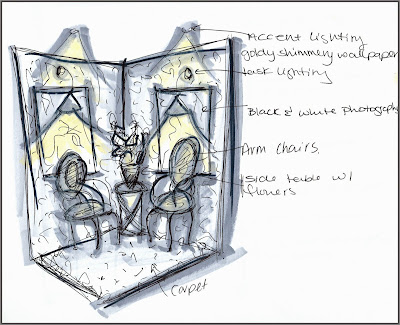 Accent lighting
goldy shimmery wallpaper
task lighting
Black & white photography
Arm chairs
Side table w/
flowers
Carpet